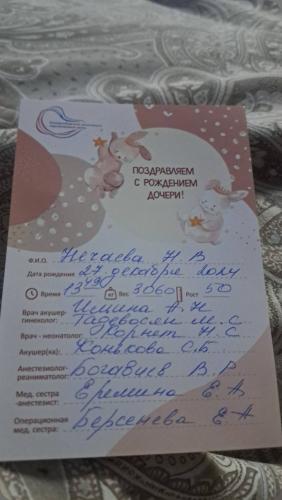 ПОЗДРАВЛЯЕМ
С РОЖДЕНИЕМ
ДОЧЕРИ!
Ф.И.О. Нечаева Н. В
Дата рождения 27 декабря 2024
Время 13 49 Вес 3060 Рост 50
Врач акушер-гинеколог: А. Н
Тадевосян М. С
Врач - неонатолог: Н. С
Акушер(ка): Конькова С. Б
Анестезиолог-реаниматолог: В. Р
Мед. сестра -анестезист: Еремина Е. А
Операционная мед. сестра: Берсенева Е. А